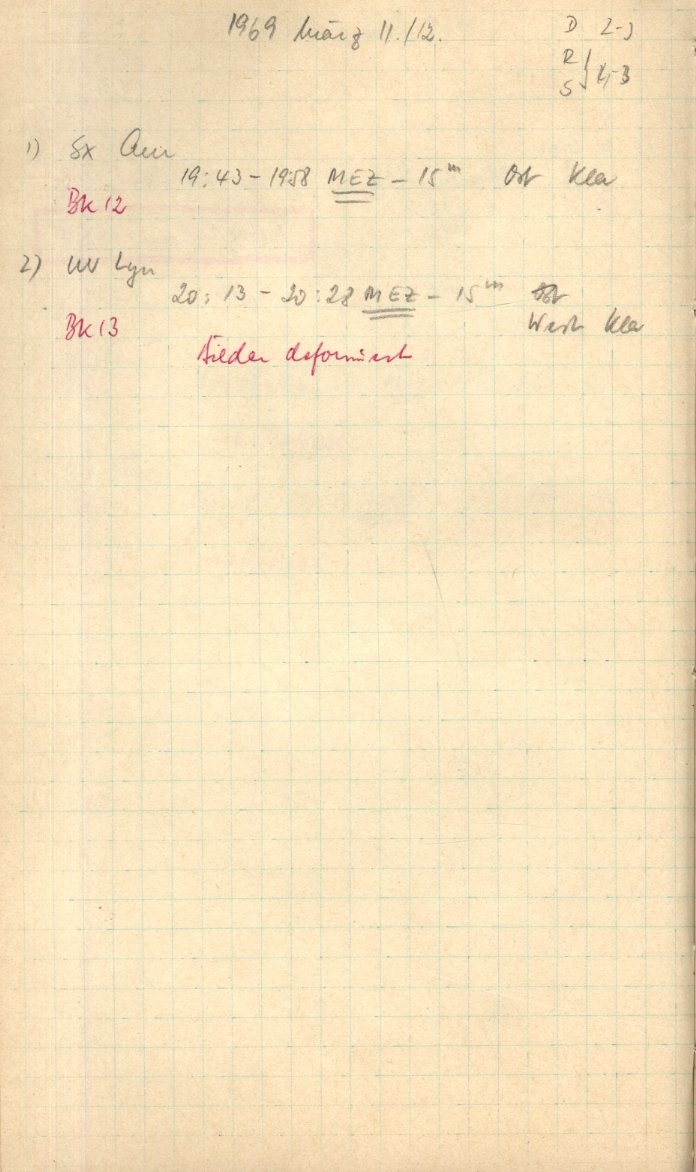 1969 März 11./12.
D 2-3
R
S } 4-3
1) SX Aur
19:43 – 19 58 MEZ – 15ᵐ Ost Kla
Bk 12
2) UV Lyn
20:13 – 20:28 MEZ – 15ᵐ Ost
West Kla
Bk 13
Bilder deformiert